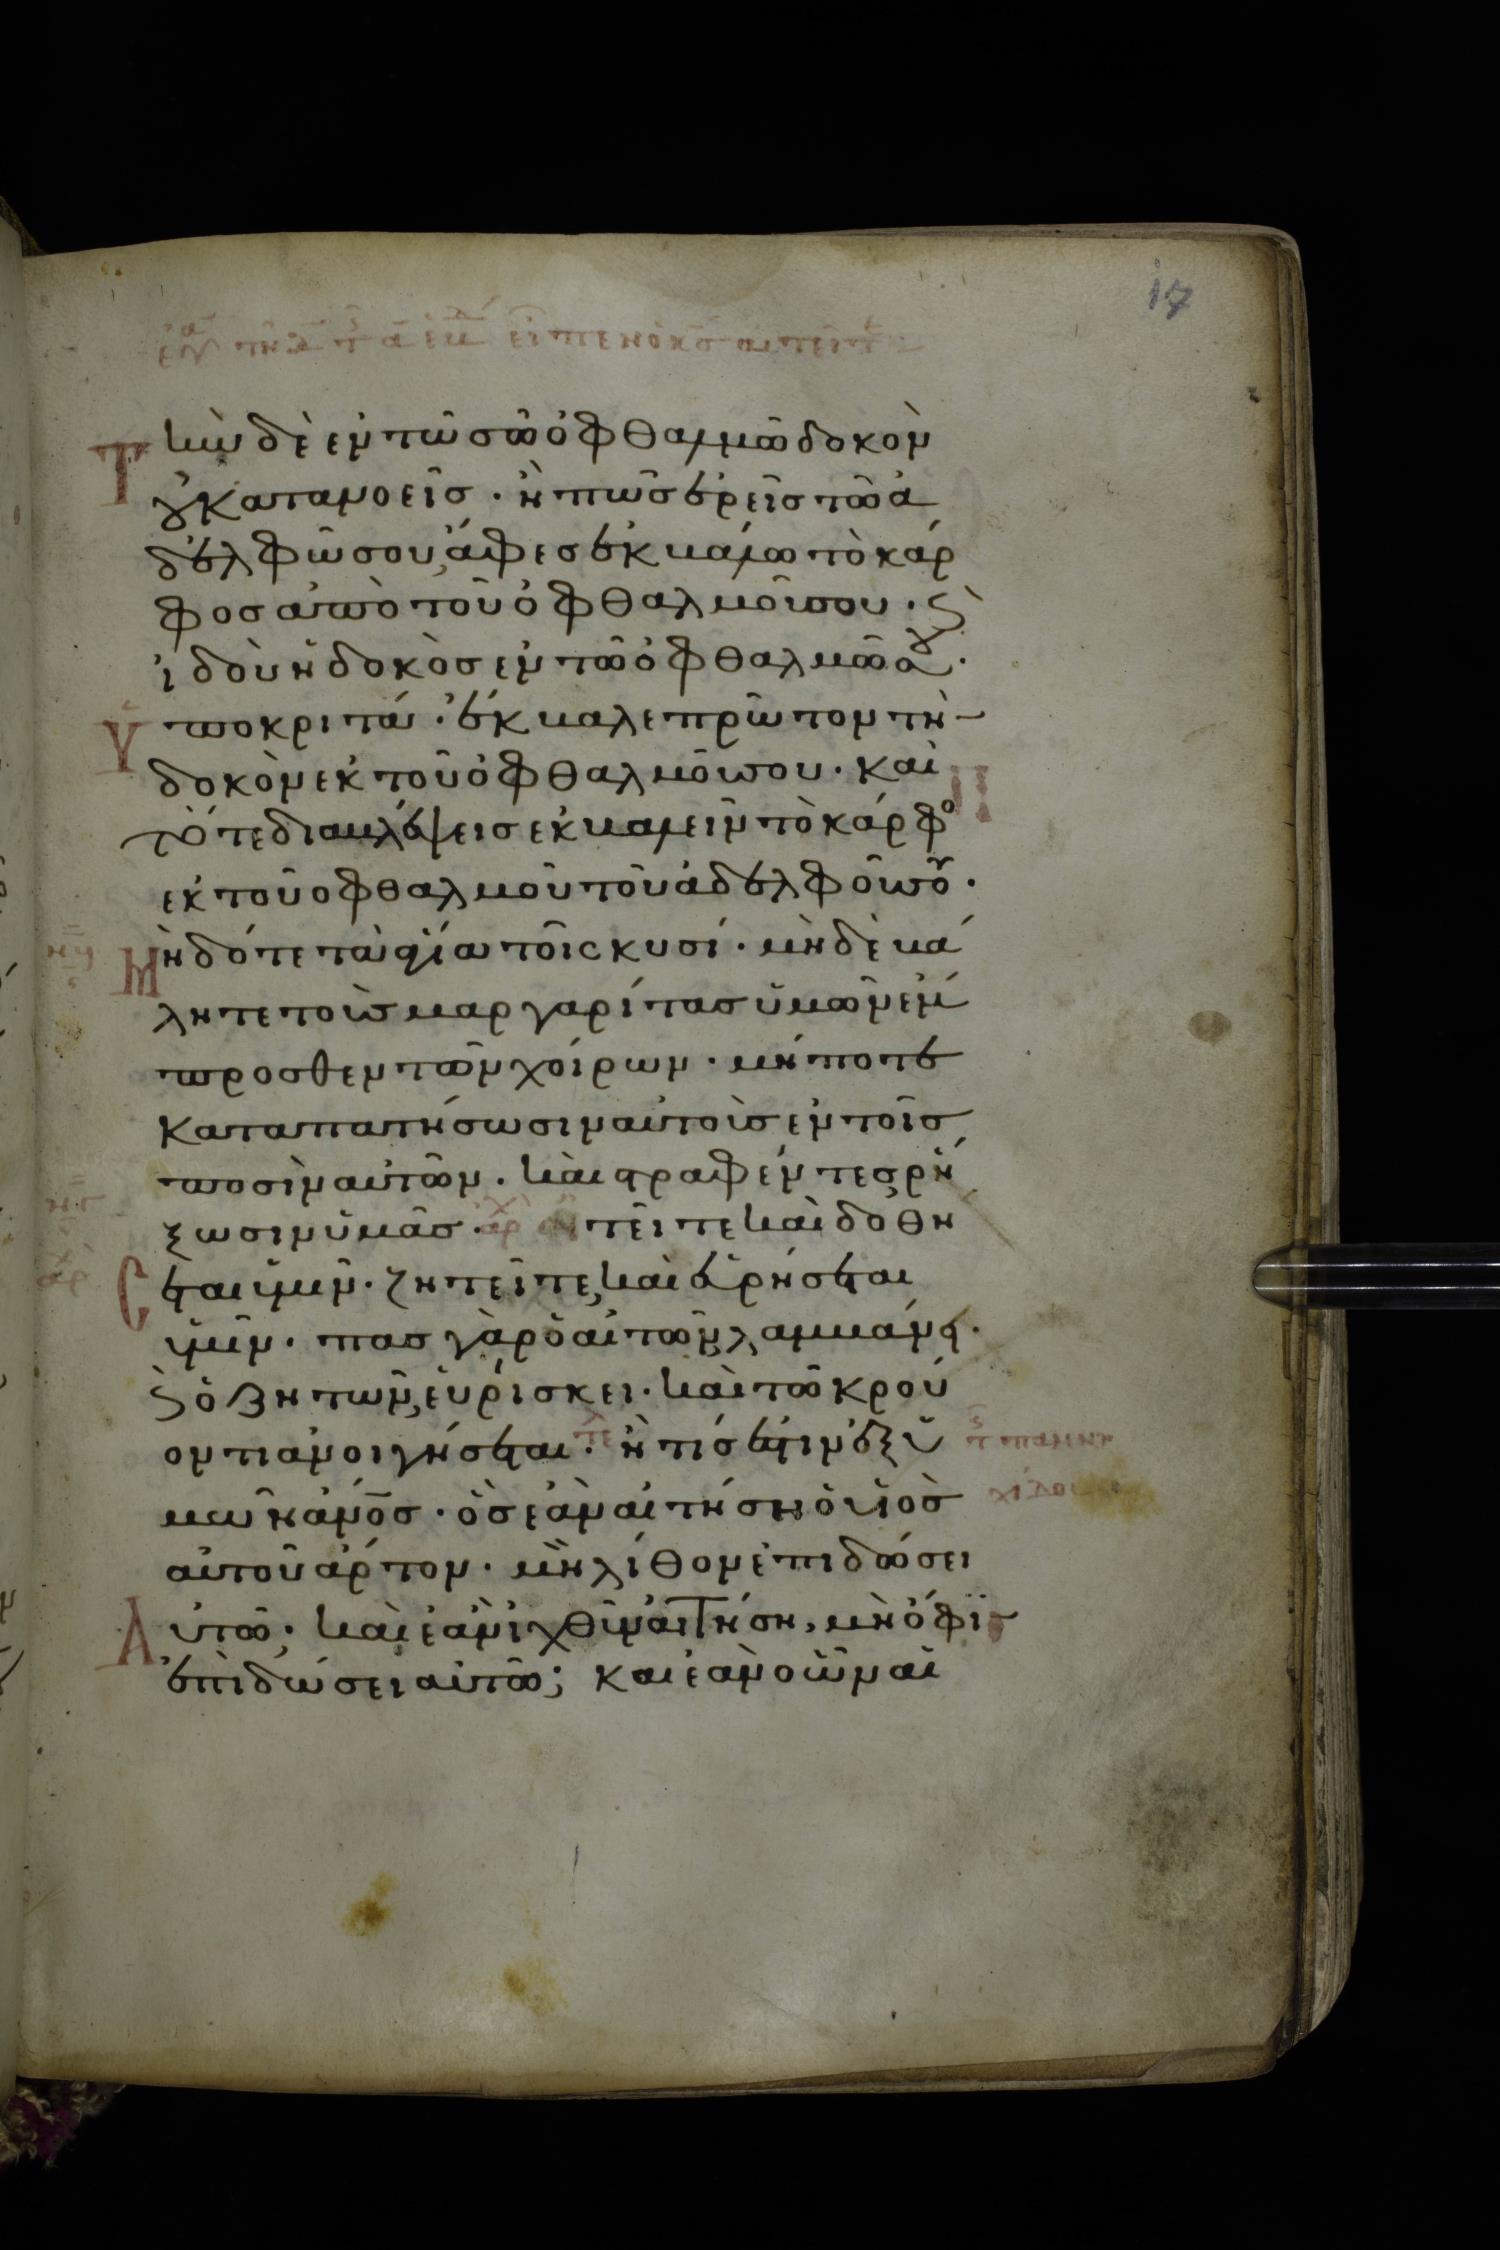 17
εἶπεν ὁ κς αἰτεῖτ
Τὴν δὲ ἐν τῶ σῶ ὀφθαλμῶ δοκὸν
οὐ κατανοεῖς · ἢ πῶς ἐρεῖς τῶ ἀ
δελφῶ σου, ἄφες ἐκβάλω τὸ κάρ
φος ἀπὸ τοῦ ὀφθαλμοῦ σου · κ
ἰδοὺ ἡ δοκὸς ἐν τῶ ὀφθαλμῶ σου ·
Ὑποκριτά · ἔκβαλε πρῶτον τὴν
δοκὸν ἐκ τοῦ ὀφθαλμοῦ σου · καὶ
τότε διαβλέψεις ἐκβαλεῖν τὸ κάρφο
ἐκ τοῦ ὀφθαλμοῦ τοῦ ἀδελφοῦ σου ·
Μὴ δότε τὰ ἅγια τοῖς κυσί · μὴ δὲ βά
λητε τοὺς μαργαρίτας ὑμῶν ἔμ
προσθεν τῶν χοίρων · μήποτε
καταπατήσωσιν αὐτοὺς ἐν τοῖς
ποσὶν αὐτῶν · καὶ στραφέντες ῥή
ξωσιν ὑμᾶς · αἰτεῖτε καὶ δοθή
σεται ὑμῖν · ζητεῖτε, καὶ εὑρήσεται
ὑμῖν · πας γὰρ ὁ αἰτῶν, λαμβάνει ·
κ ὁ ζητῶν, εὑρίσκει · καὶ τῶ κρού
οντι ἀνοιγήσεται · ἢ τίς ἐστιν ἐξ ὑ
μῶν ἄνος · ὃς ἐὰν αἰτήση ὁ υἱὸς
αὐτοῦ ἄρτον · μὴ λίθον ἐπιδώσει
Αὐτῶ · καὶ ἐὰν ἰχθῦν αἰτήση, μὴ ὄφιν
ἐπιδώσει αὐτῶ; καὶ ἐὰν ὠὸν αἰ